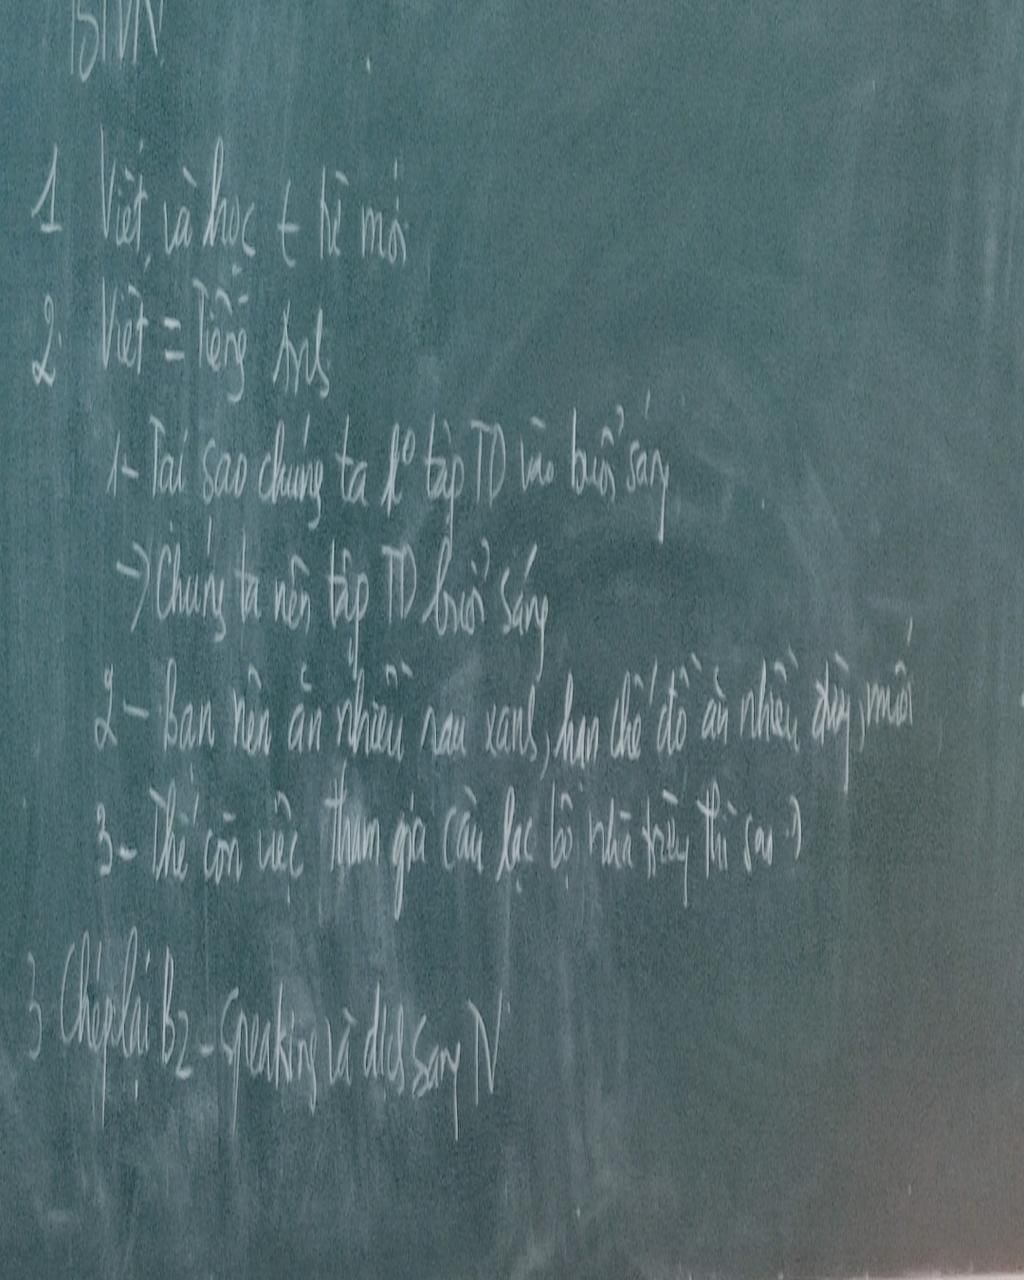 BTVN
1 Viết và học từ mới
2. Viết = Tiếng Anh
1- Tại sao chúng ta ko tập TD vào buổi sáng
→ Chúng ta nên tập TD buổi sáng
2- Bạn nên ăn nhiều rau xanh, hạn chế đồ ăn nhiều đường, muối
3- Thế còn việc tham gia câu lạc bộ nhà trường thì sao?
3 Chép lại B2 - Speaking và dịch sang VN